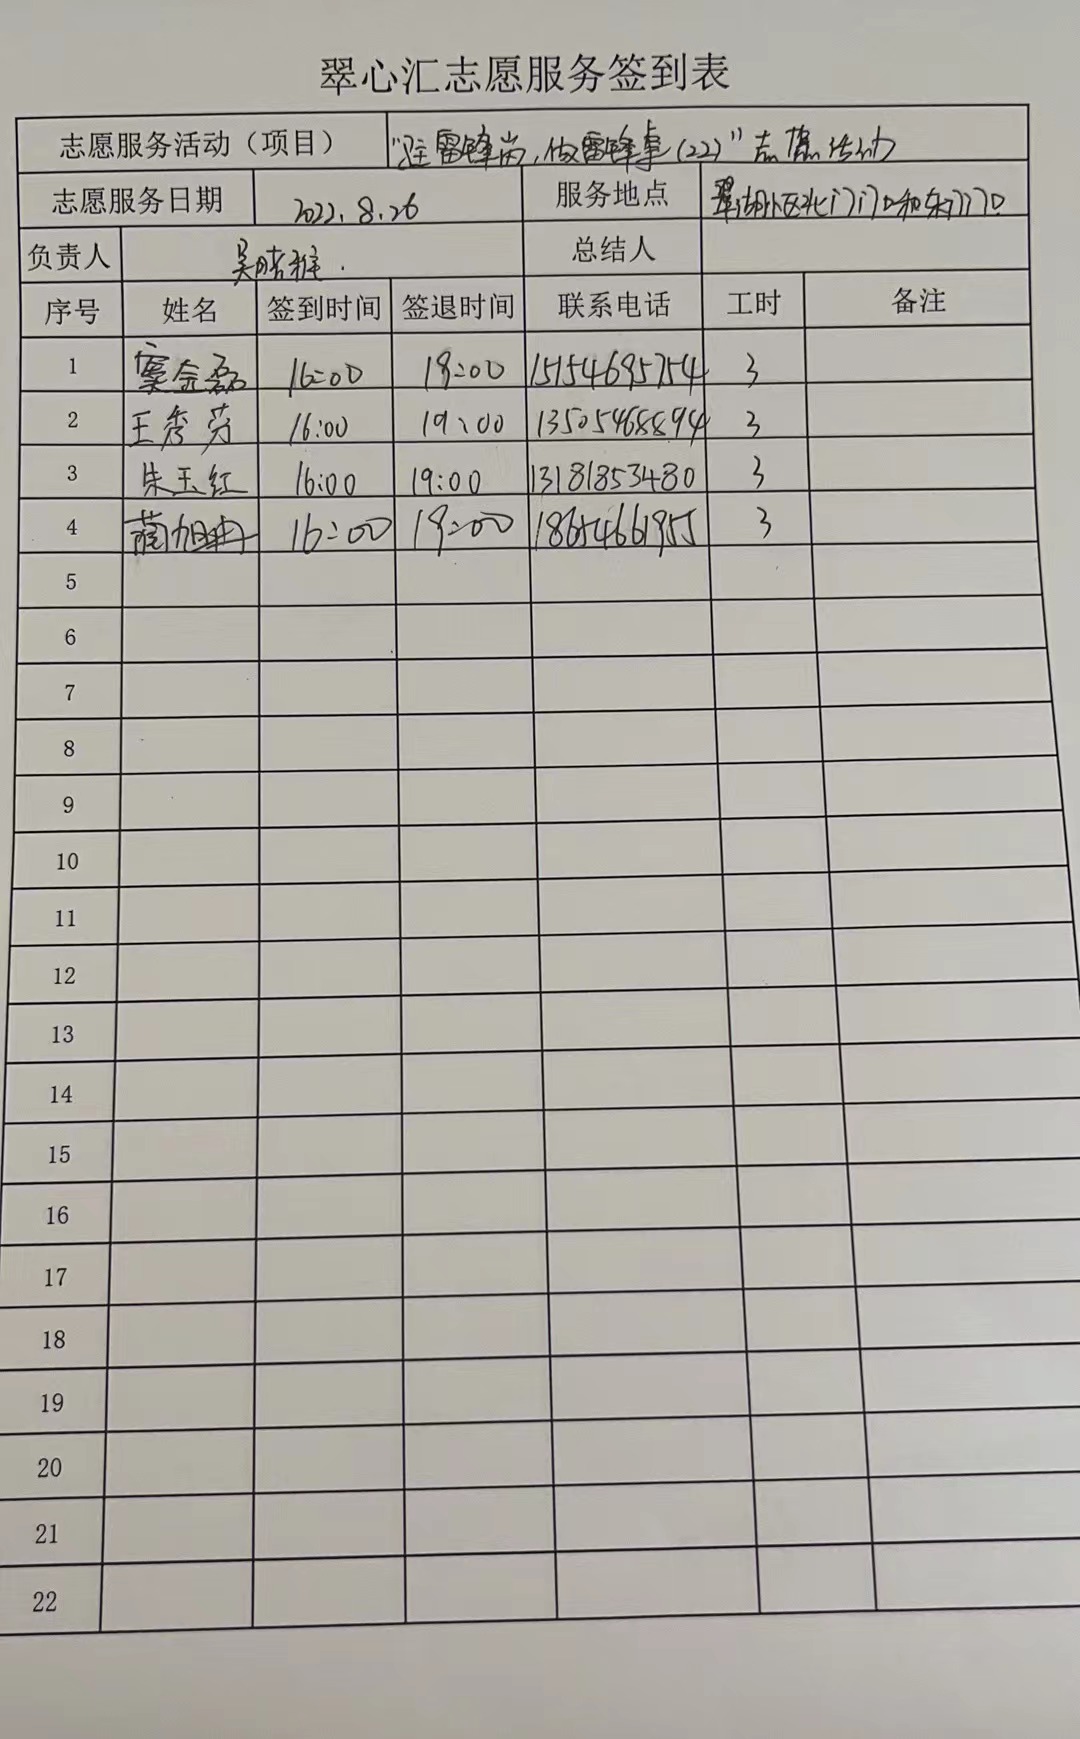 翠心汇志愿服务签到表
志愿服务活动（项目） "驻雷锋岗,做雷锋事(22)"志愿活动
志愿服务日期 2022.8.26 服务地点 翠湖小区北门门口和东门门口
负责人 吴 雅 总结人
序号 姓名 签到时间 签退时间 联系电话 工时 备注
1 窦金磊 16:00 19:00 15154695754 3
2 王秀芬 16:00 19:00 13505468894 3
3 朱玉红 16:00 19:00 13181853480 3
4 旭冉 16:00 19:00 18654661955 3
5
6
7
8
9
10
11
12
13
14
15
16
17
18
19
20
21
22